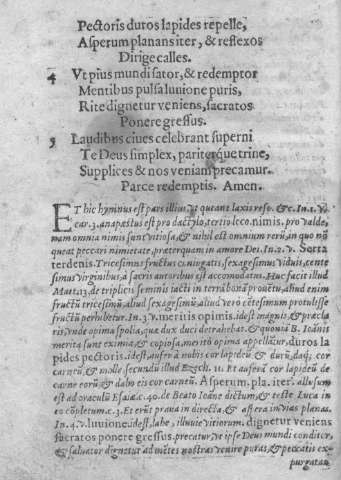 Pectoris duros lapides repelle,
Asperum planans iter, & reflexos
Dirige calles.
4 Vt pius mundi sator, & redemptor
Mentibus pulsa luuione puris,
Rite dignetur veniens, sacratos
Ponere gressus.
5 Laudibus ciues celebrant superni
Te Deus simplex, pariterque trine,
Supplices & nos veniam precamur.
Parce redemptis. Amen.
ET hic hymnus est pars illius, vt queant laxis reso. &c. In. 1. v.
car. 3. anapæstus est pro dactylo, tertio loco. nimis. pro valde,
nam omnia nimis sunt vitiosa, & nihil est omnium rerū, in quo nō
queat peccari nimietate, præterquam in amore Dei. In. 2. v. Serta
terdenis. Tricesimus fructus cōiugatis, sexagesimus viduis, cente
simus virginibus, à sacris autoribus est accomodatus. Huc facit illud
Matt. 13. de triplicis seminis iacti in terrā bonā prouētu, aliud enim
fructū tricesimū, aliud sexagesimū, aliud verò cētesimum protulisse
fructū perhibetur. In. 3. v. meritis opimis. idest magnis, & præcla
ris, vnde opima spolia, quæ dux duci detrahebat. & quoniā B. Ioānis
merita sunt eximia, & copiosa, meritò opima appellātur. duros la
pides pectoris. idest, aufer à nobis cor lapideū & durū, daq; cor
carneū, & molle secundū illud Ezech. 11. Et auferā cor lapideū de
carne eorū, & dabo eis cor carneū. Asperum. pla. iter. allusum
est ad oraculū Esaiæ. c. 40. de Beato Ioāne dictum, & teste Luca in
eo cōpletum. c. 3. Et erūt praua in directa, & aspera in vias planas.
In. 4. v. luuione. idest, labe, illuuie vitiorum. dignetur veniens
sacratos ponere gressus. precatur, vt ipse Deus mundi conditor,
& saluator dignetur ad mētes nostras venire puras, & peccatis ex-
purgatas.